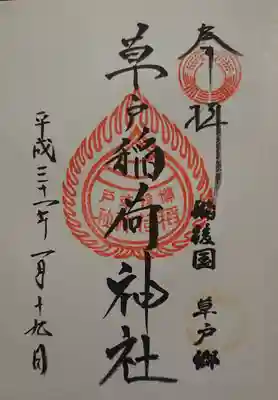 奉拝
備後国 草戸郷
草戸稲荷神社
平成三十一年一月十九日